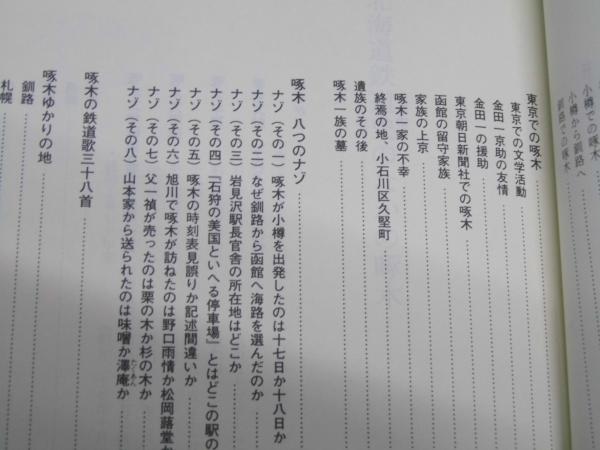 小樽での啄木
小樽から釧路へ
釧路での啄木
東京での啄木
東京での文学活動
金田一京助の友情
金田一の援助
東京朝日新聞社での啄木
函館の留守家族
家族の上京
啄木一家の不幸
終焉の地、小石川区久堅町
遺族のその後
啄木一族の墓
啄木 八つのナゾ
ナゾ(その一) 啄木が小樽を出発したのは十七日か十八日か
ナゾ(その二) なぜ釧路から函館へ海路を選んだのか
ナゾ(その三) 岩見沢駅長官舎の所在地はどこか
ナゾ(その四) 「石狩の美国といへる停車場」とはどこの駅の
ナゾ(その五) 啄木の時刻表見誤りか記述間違いか
ナゾ(その六) 旭川で啄木が訪ねたのは野口雨情か松岡蕗堂か
ナゾ(その七) 父一禎が売ったのは栗の木か杉の木か
ナゾ(その八) 山本家から送られたのは味噌か澤庵か
啄木の鉄道歌三十八首
啄木ゆかりの地
釧路
札幌